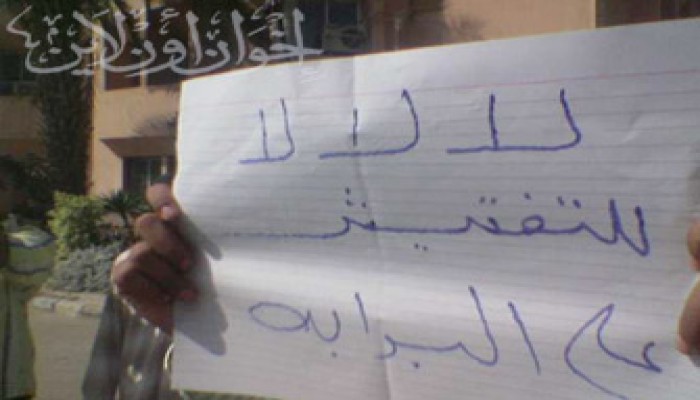 إخوان أون لاين
لا لا لا
للتفتيش
على البوابه